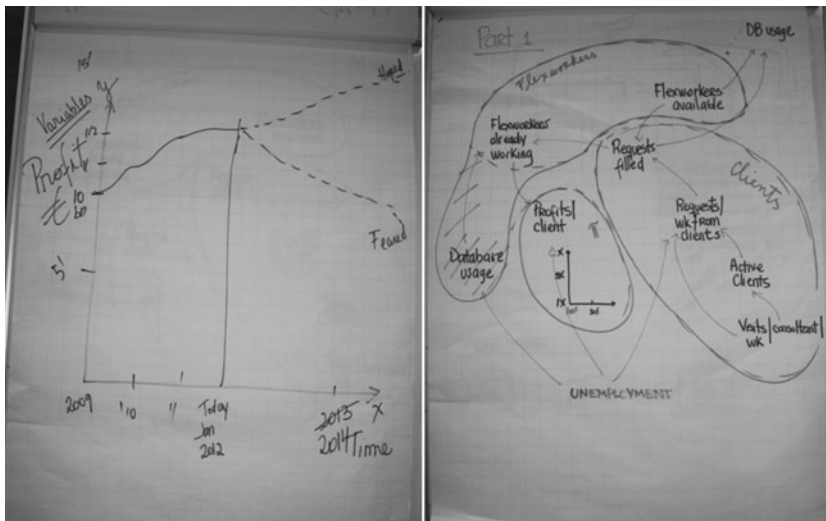 15'
Variables y
Hoped
1/2
Profit
£
10
bn
5'
Feared
2009
'10
11
Today
Jan
2012
2013
2014
x
Time
Part 1
DB usage
Flexworkers
Flexworkers
available
Flexworkers
already
working
Requests
filled
Clients
Profits/
client
Requests/
wk from
clients
Database
usage
Active
Clients
Visits/consultant/
wk
UNEMPLOYMENT